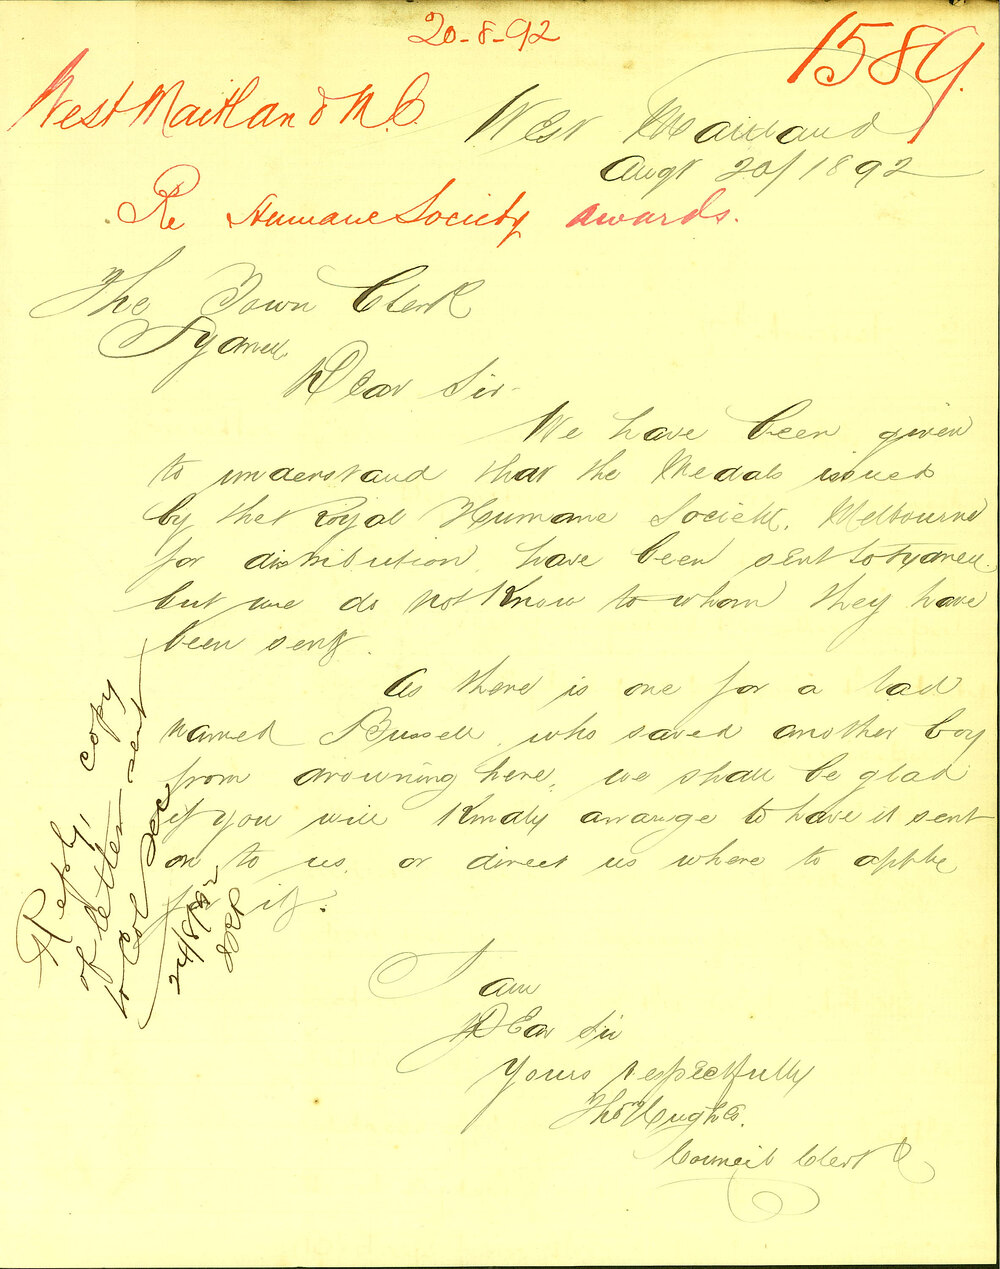 20-8-92
1589.
West Maitland M.C.
West Maitland
Augt 20/1892
Re Humane Society awards.
The Town Clerk
Sydney.
Dear Sir
We have been given
to understand that the Medals issued
by the Royal Humane Society, Melbourne
for distribution, have been sent to Sydney.
but we do not Know to whom they have
been sent.
As there is one for a lad
named Bussell, who saved another boy
from drowning here, we shall be glad
if you will Kindly arrange to have it sent
on to us, or direct us where to apply
for it.
I am
Dear Sir
Yours respectfully
Thos Hughes.
Council Clerk
Reply, copy
of letter sent
to Col Sec
24/8/92